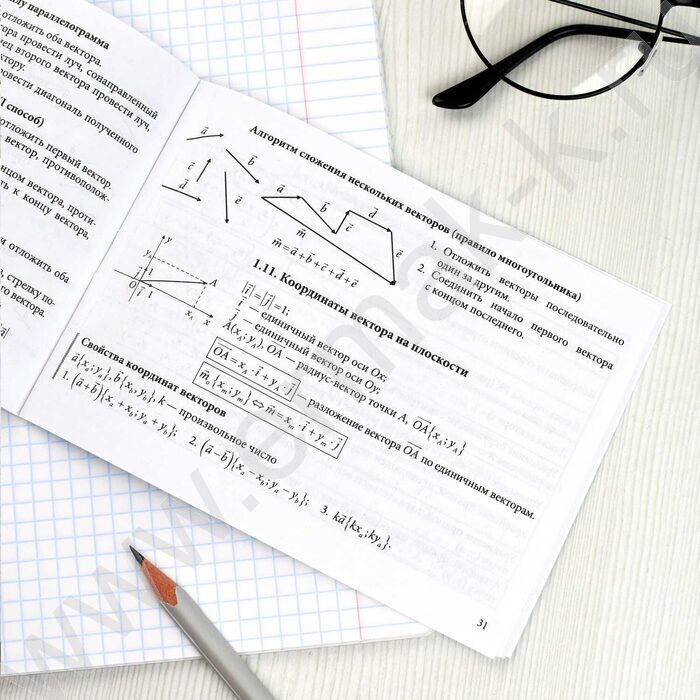 алу параллелограмма
отложить оба вектора.
ора провести луч, сонаправленный
ец второго вектора провести луч,
ктору.
ровести диагональ полученного
I способ)
отложить первый вектор.
вектор, противополож-
нцом вектора, проти-
ть к концу вектора,
м отложить оба
, стрелку по-
Алгоритм сложения нескольких векторов (правило многоугольника)
a b c d e
a b c d e m
m = a + b + c + d + e
1. Отложить векторы последовательно
один за другим.
2. Соединить начало первого вектора
с концом последнего.
1.11. Координаты вектора на плоскости
y
yₐ
1
j
O i 1 xₐ x
A
|i| = |j| = 1;
i — единичный вектор оси Ox;
j — единичный вектор оси Oy;
A(xₐ; yₐ), OA — радиус-вектор точки A, OA{xₐ; yₐ}
OA = xₐ · i + yₐ · j — разложение вектора OA по единичным векторам.
mₐ{xₘ; yₘ} ⇔ m = xₘ · i + yₘ · j
Свойства координат векторов
a{xₐ; yₐ}, b{x_b; y_b}, k — произвольное число
1. (a + b){xₐ + x_b; yₐ + y_b}; 2. (a − b){xₐ − x_b; yₐ − y_b}; 3. ka{kxₐ; kyₐ}.
31
www.ermak-k.ru